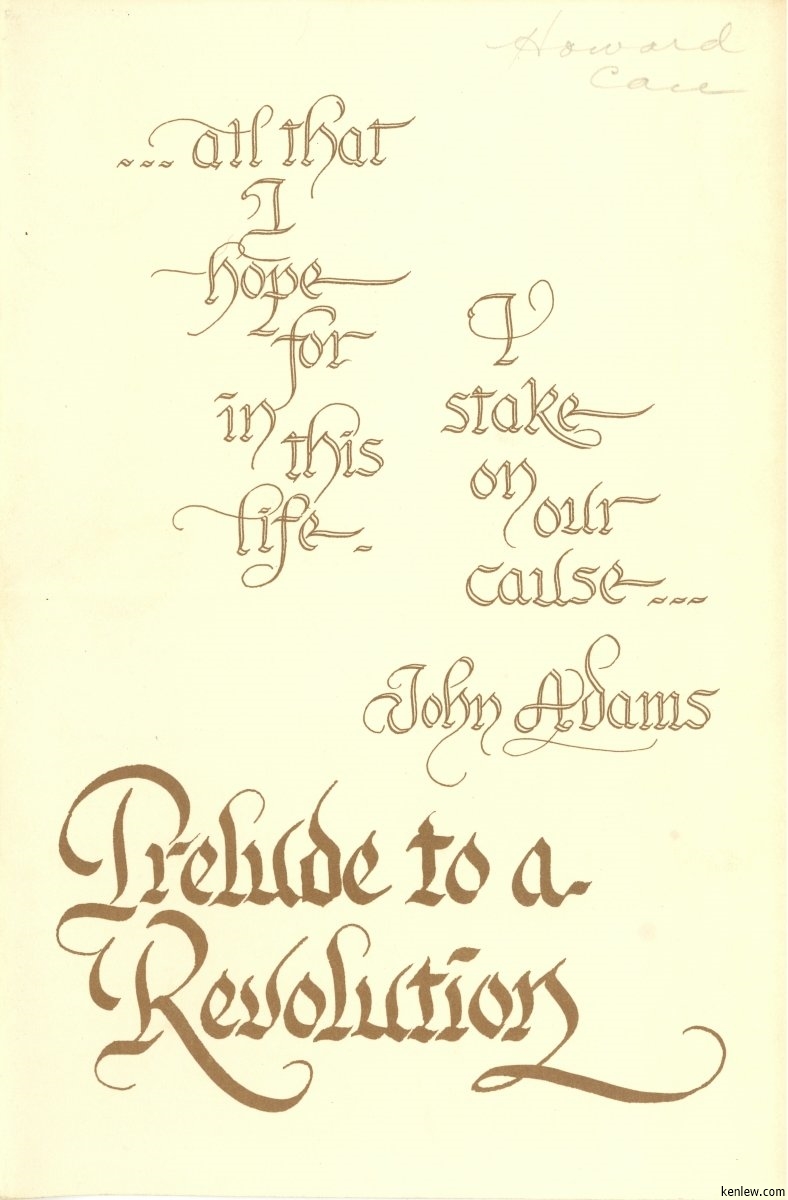 Howard
...all that
I
hope
for
in this
life-
I
stake
on our
cause...
John Adams
Prelude to a
Revolution
kenlew.com